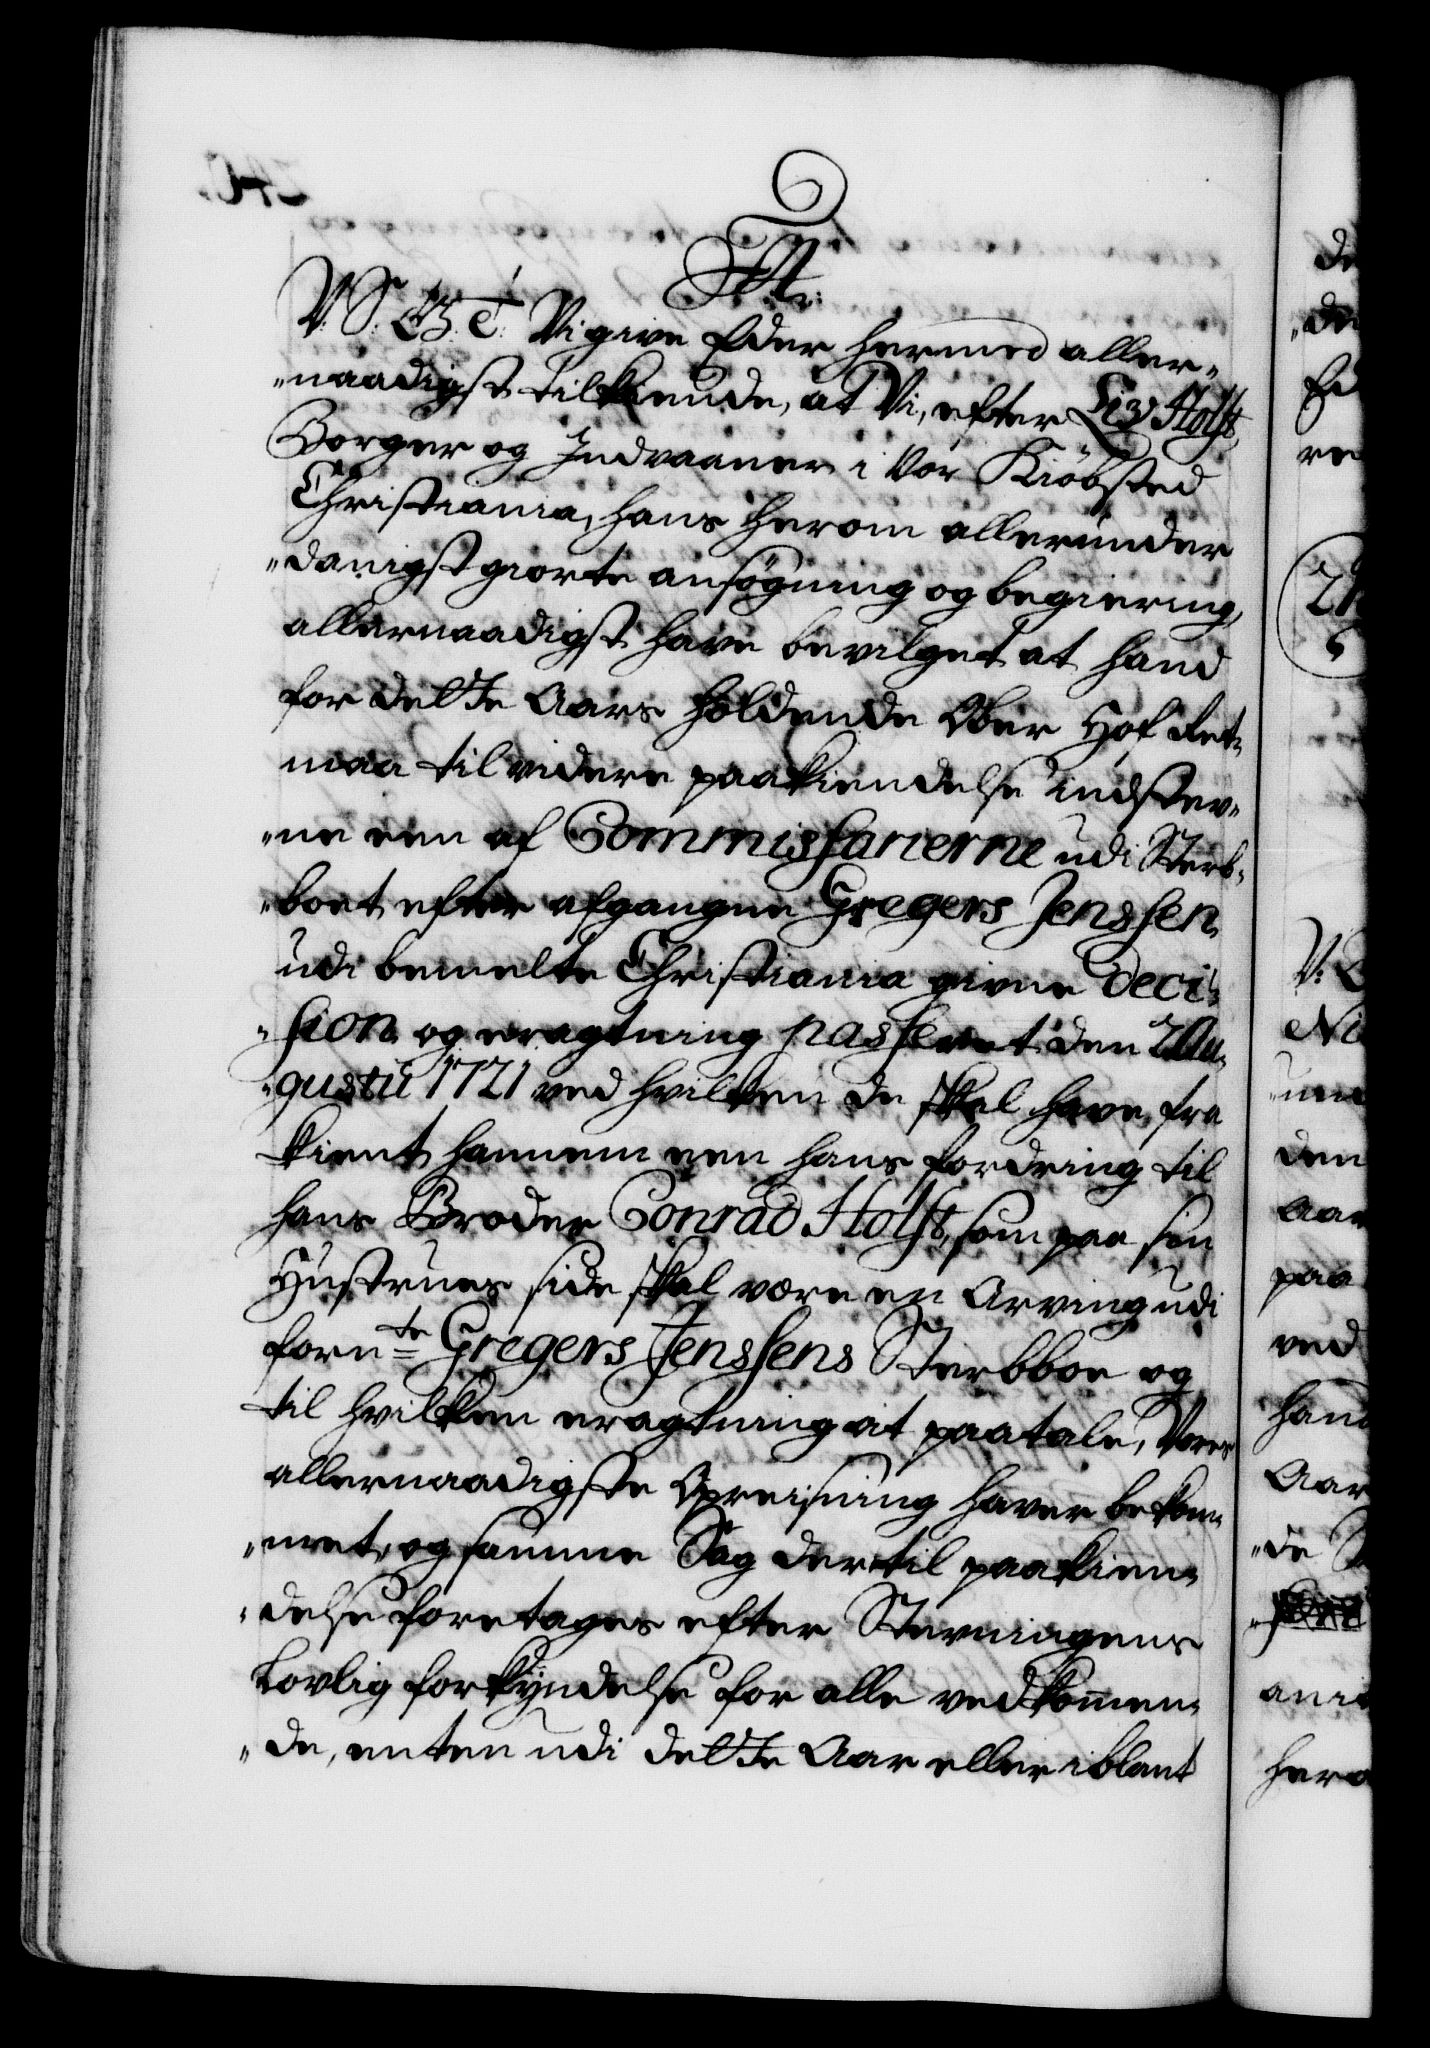 Fr:
V: S: G: T: Vi give Eder hermed aller¬
„naadigst tilkiende, at Vi, efter Holst,
Borger og Indvaaner i Vor Kiöbsted
Christiania, hans herom allerunder
„danigst giorte ansögning og begiering,
allernaadigst have bevilget at hand
for dette Aars holdende Ober Hof Ret,
maa til videre paakiendelse indstev¬
„ne een af Commissarierne udi Sterb¬
„boet efter afgangne Gregers Jenssen,
udi bemelte Christiania givne Deci¬
„sion og eragtning passeret den 2 Au¬
„gustii 1721 ved hvilken de skal have fra
kient hannem een hans fordring til
hans Broder Conrad Holst, som paa sin
Hustrues side skal være en Arving udi
forn:te Gregers Jenssens Sterbboe og
til hvilken eragtning at paatale, Vores
allernaadigste Opreisning haver bekom¬
„met, og samme Sag der til paakien¬
„delse foretages efter Stevningens
Lovlig forkyndelse for alle vedkommen¬
„de, enten udi dette Aar eller iblant